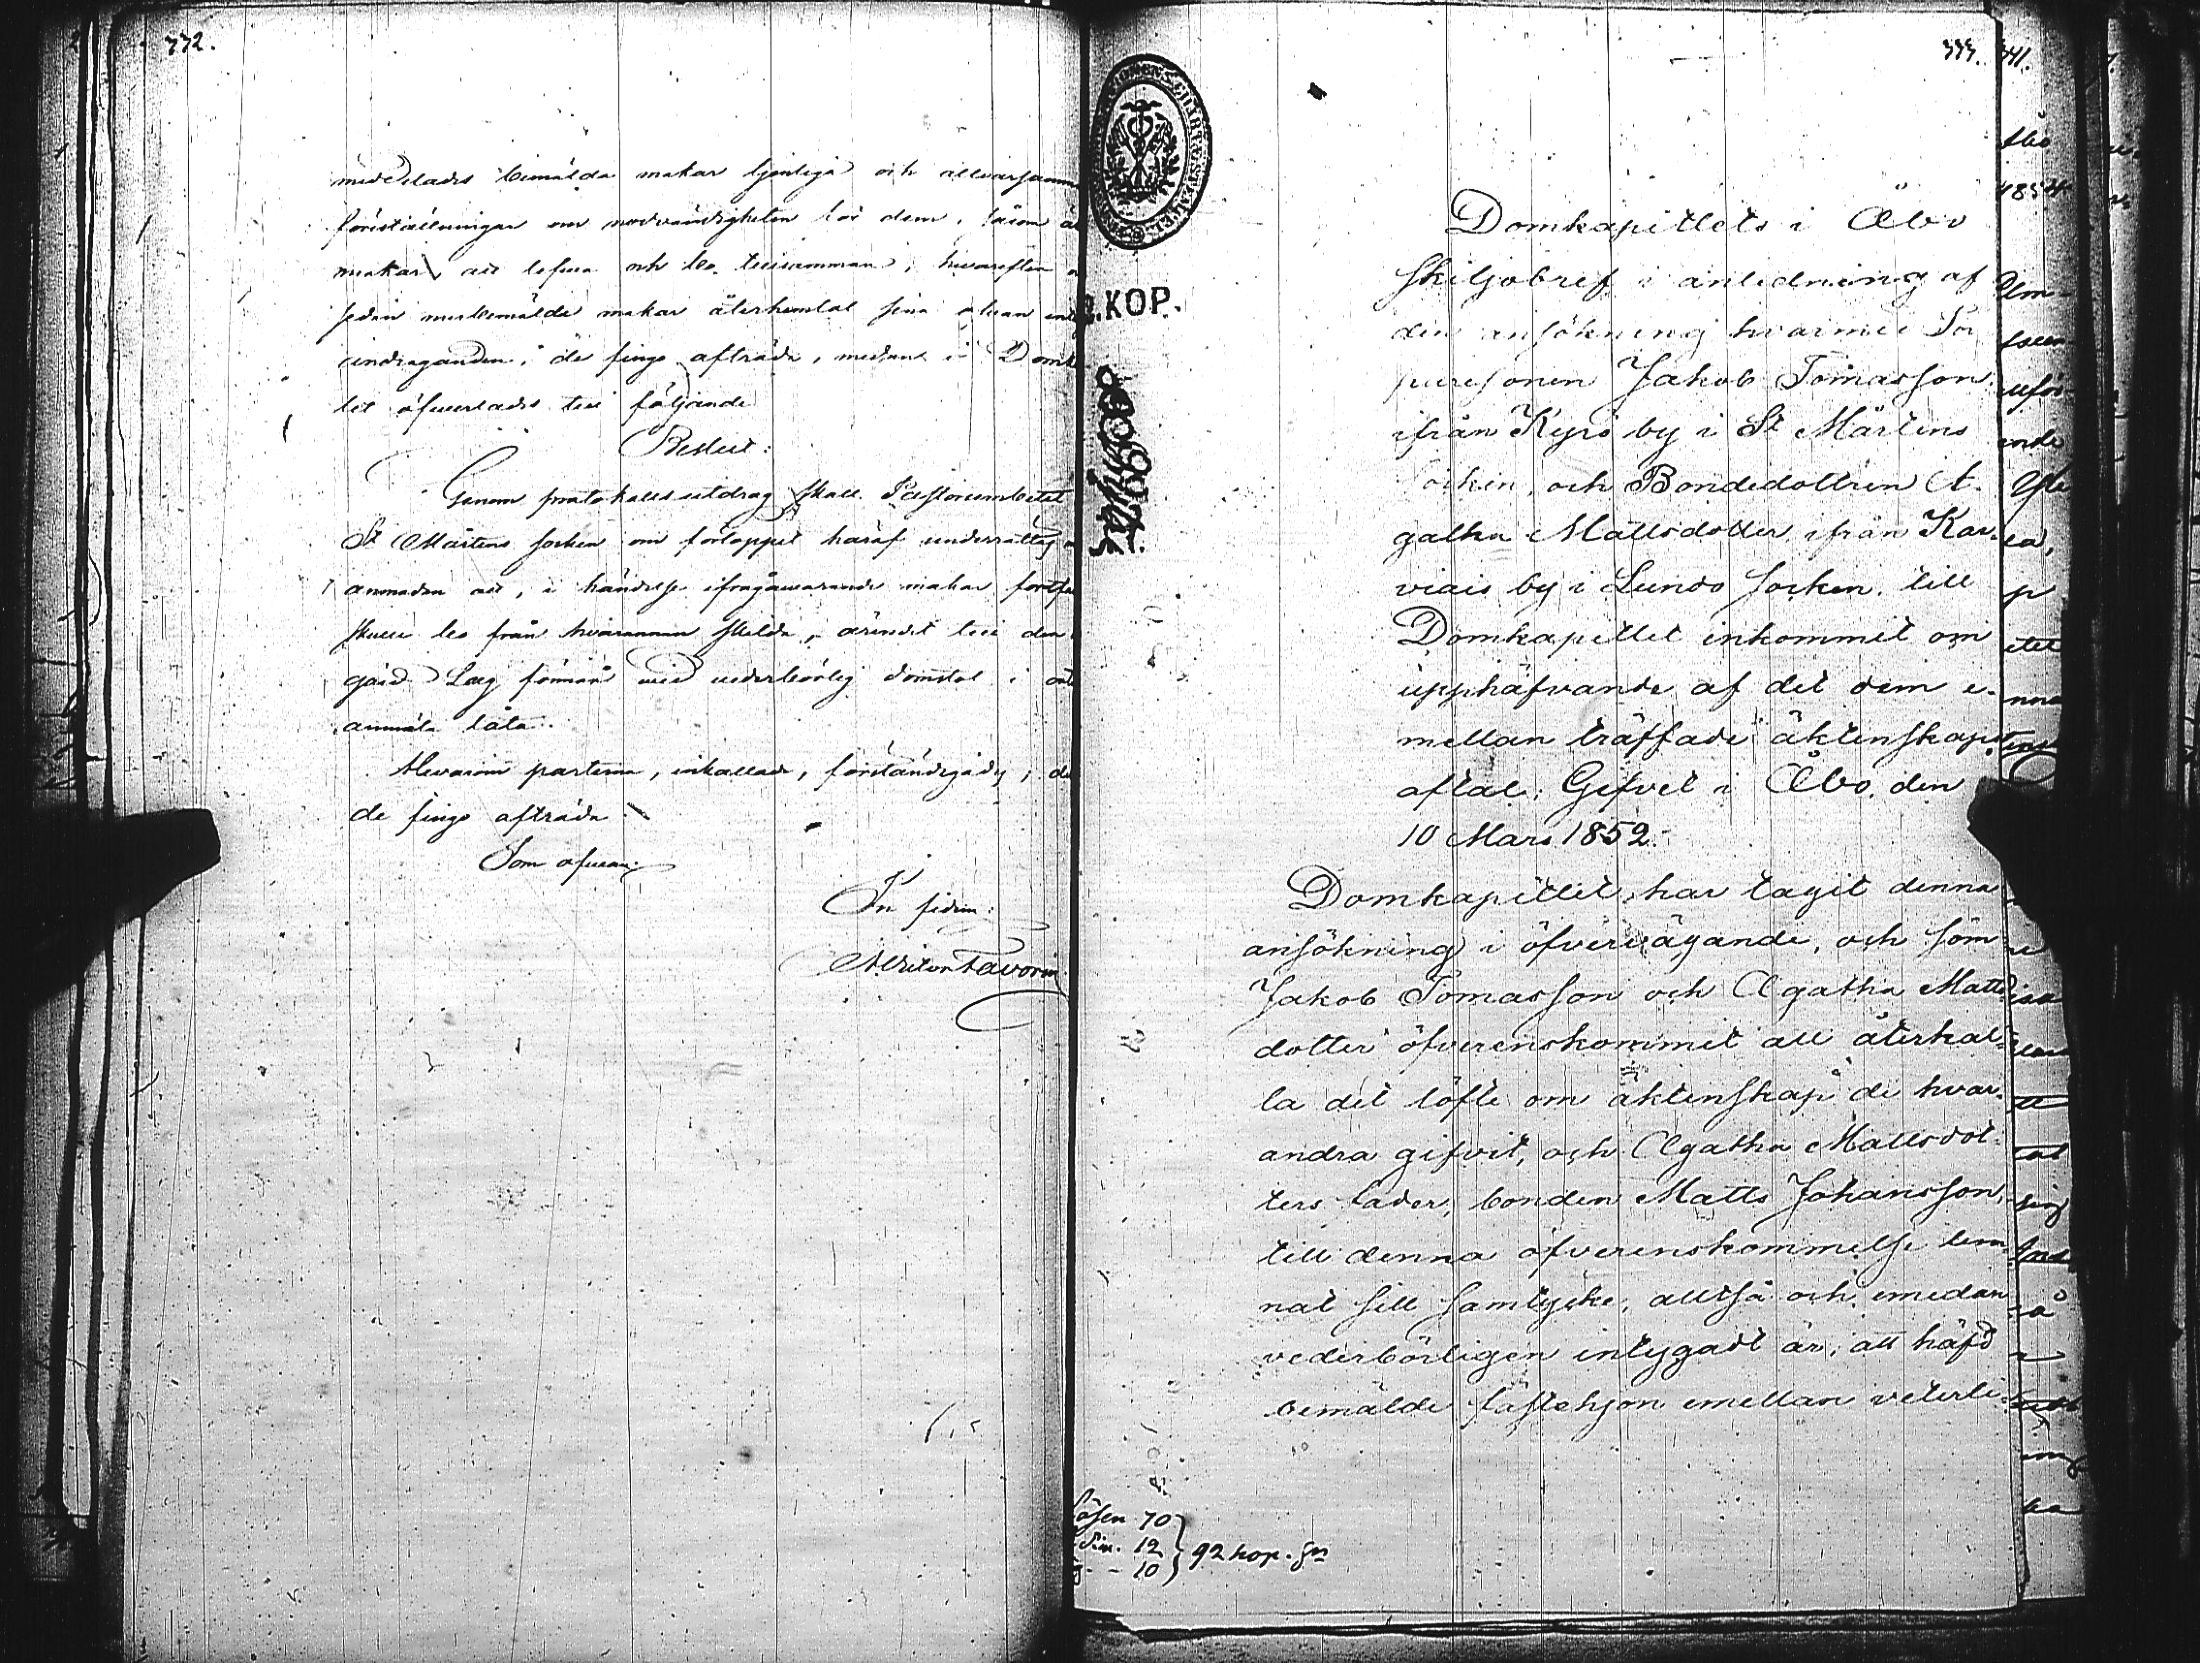 332.
meddelades bemälda makar tjenliga och allvarsamma
föreställningar om nödvändigheten för dem, såsom ä
makar att lefva och bo tillsamman; hvarefter
sedan merbemälde makar återhemtat sina ofvan
andraganden, de fingo afträda, medan i Domka
let öfverlades till följande
Beslut:
Genom protokollsutdrag skall Pastorsembetet
St Mårtens socken om förloppet häraf underrättas
anmodan att, i händelse ifrågavarande makar fortfa
skulle bo från hvarannan skilda, ärendet till den
gård Lag förmår vid vederbörlig domstol i ort
anmäla låta.
Hvarom parterna, inkallade, förständigades; då
de fingo afträda.
Som ofvan.
In fidem:
333.
KOP.
Domkapitlets i Åbo
Skiljobref i anledning af
den ansökning hvarmed Tor
paresonen Jakob Tomasson
ifrån Kyrö by i St Mårtens
Socken, och Bondedottren A-
gatha Mattsdotter ifrån Kar-
viais by i Lundo Socken, till
Domkapitlet inkommit om
upphäfvande af det dem e-
mellan träffade äktenskaps
aftal; Gifvet i Åbo, den
10 Mars 1852.
Domkapitlet har tagit denna
ansökning i öfvervägande, och som
Jakob Tomasson och Agatha Matts
dotter öfverenskommit att återkal-
la det löfte om äktenskap de hvar-
andra gifvit, och Agatha Mattsdot-
ters fader, bonden Matts Johansson,
till denna öfverenskommelse lem-
nat sitt samtycke, alltså och emedan
vederbörligen intygadt är, att häfd
bemälde fästehjon emellan veterli-
Lösen 70
din. 12
10
92 kop. Sr
341.